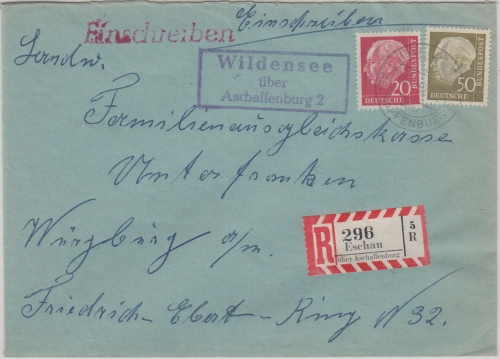 Einschreiben
Einschreiben
Landw.
Wildensee
über
Aschaffenburg 2
20
DEUTSCHE BUNDESPOST
50
DEUTSCHE BUNDESPOST
Familienausgleichskasse
Unterfranken
R
296
Eschau
über Aschaffenburg
5
R
Würzburg a/m.
Friedrich-Ebert-Ring N 32.